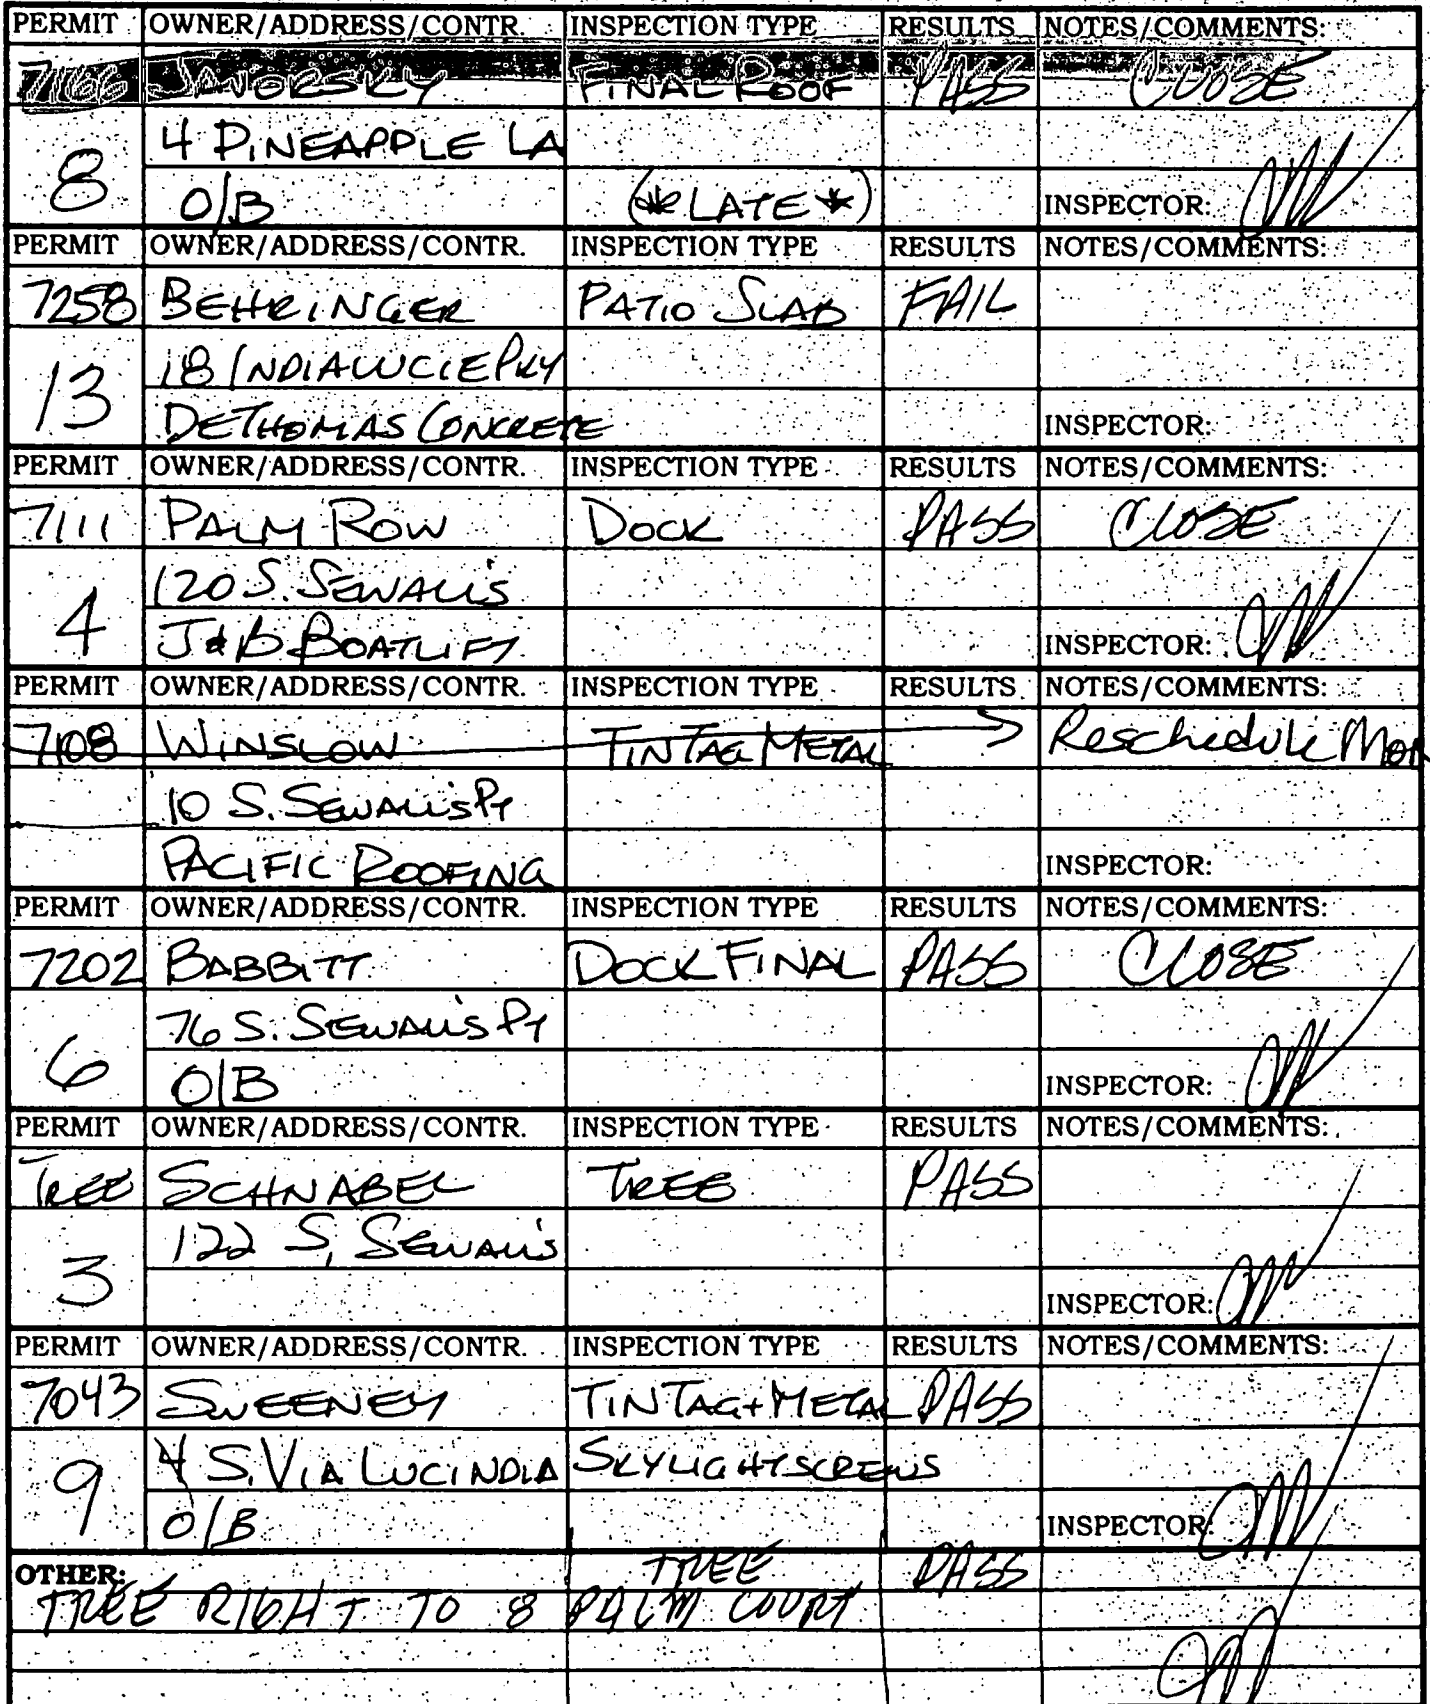 PERMIT OWNER/ADDRESS/CONTR. INSPECTION TYPE RESULTS NOTES/COMMENTS:
7166 JAVORSKY FINAL ROOF PASS CLOSE
8 4 PINEAPPLE LA
O/B (*LATE*) INSPECTOR:
PERMIT OWNER/ADDRESS/CONTR. INSPECTION TYPE RESULTS NOTES/COMMENTS:
7258 BEHRINGER PATIO SLAB FAIL
13 18 INDIALUCIE PKY
DETHOMAS CONCRETE INSPECTOR:
PERMIT OWNER/ADDRESS/CONTR. INSPECTION TYPE RESULTS NOTES/COMMENTS:
7111 PALM ROW DOCK PASS CLOSE
4 120 S. SEWALL'S
J&B BOATLIFT INSPECTOR:
PERMIT OWNER/ADDRESS/CONTR. INSPECTION TYPE RESULTS NOTES/COMMENTS:
7108 WINSLOW TIN TAG METAL Reschedule Mon
10 S. SEWALL'S PT
PACIFIC ROOFING INSPECTOR:
PERMIT OWNER/ADDRESS/CONTR. INSPECTION TYPE RESULTS NOTES/COMMENTS:
7202 BABBITT DOCK FINAL PASS CLOSE
6 76 S. SEWALL'S PT
O/B INSPECTOR:
PERMIT OWNER/ADDRESS/CONTR. INSPECTION TYPE RESULTS NOTES/COMMENTS:
TREE SCHNABEL TREE PASS
3 122 S. SEWALL'S
INSPECTOR:
PERMIT OWNER/ADDRESS/CONTR. INSPECTION TYPE RESULTS NOTES/COMMENTS:
7043 SWEENEY TIN TAG + METAL PASS
9 4 S. VIA LUCINDIA SKYLIGHT SCREWS
O/B INSPECTOR:
OTHER: TREE PASS
TREE RIGHT TO 8 PALM COURT